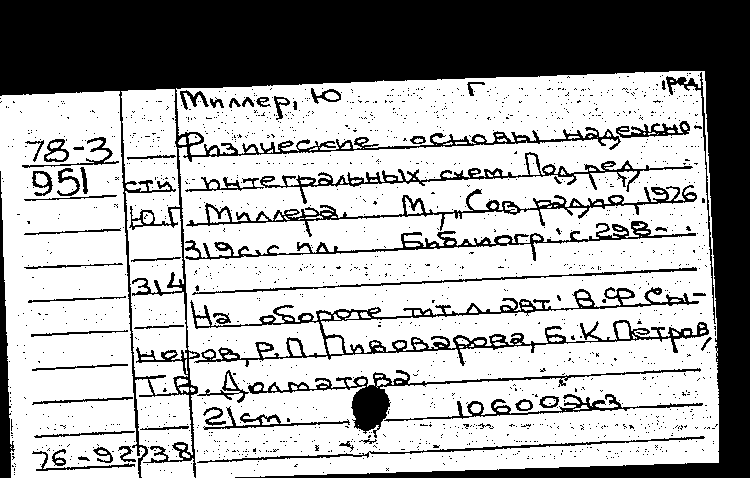 Миллер, Ю Г ,ред.
78-3 Физические основы надежно-
951 сти интегральных схем. Под ред.
Ю.Г. Миллера. М., „Сов. радио", 1976.
319 с. с ил. Библиогр.: с. 298-
314.
На обороте тит. л. авт.: В.Ф. Сы-
норов, Р.П. Пивоварова, Б.К. Петров,
Т.В. Долматова.
21 cm. 10600 экз
76-92738